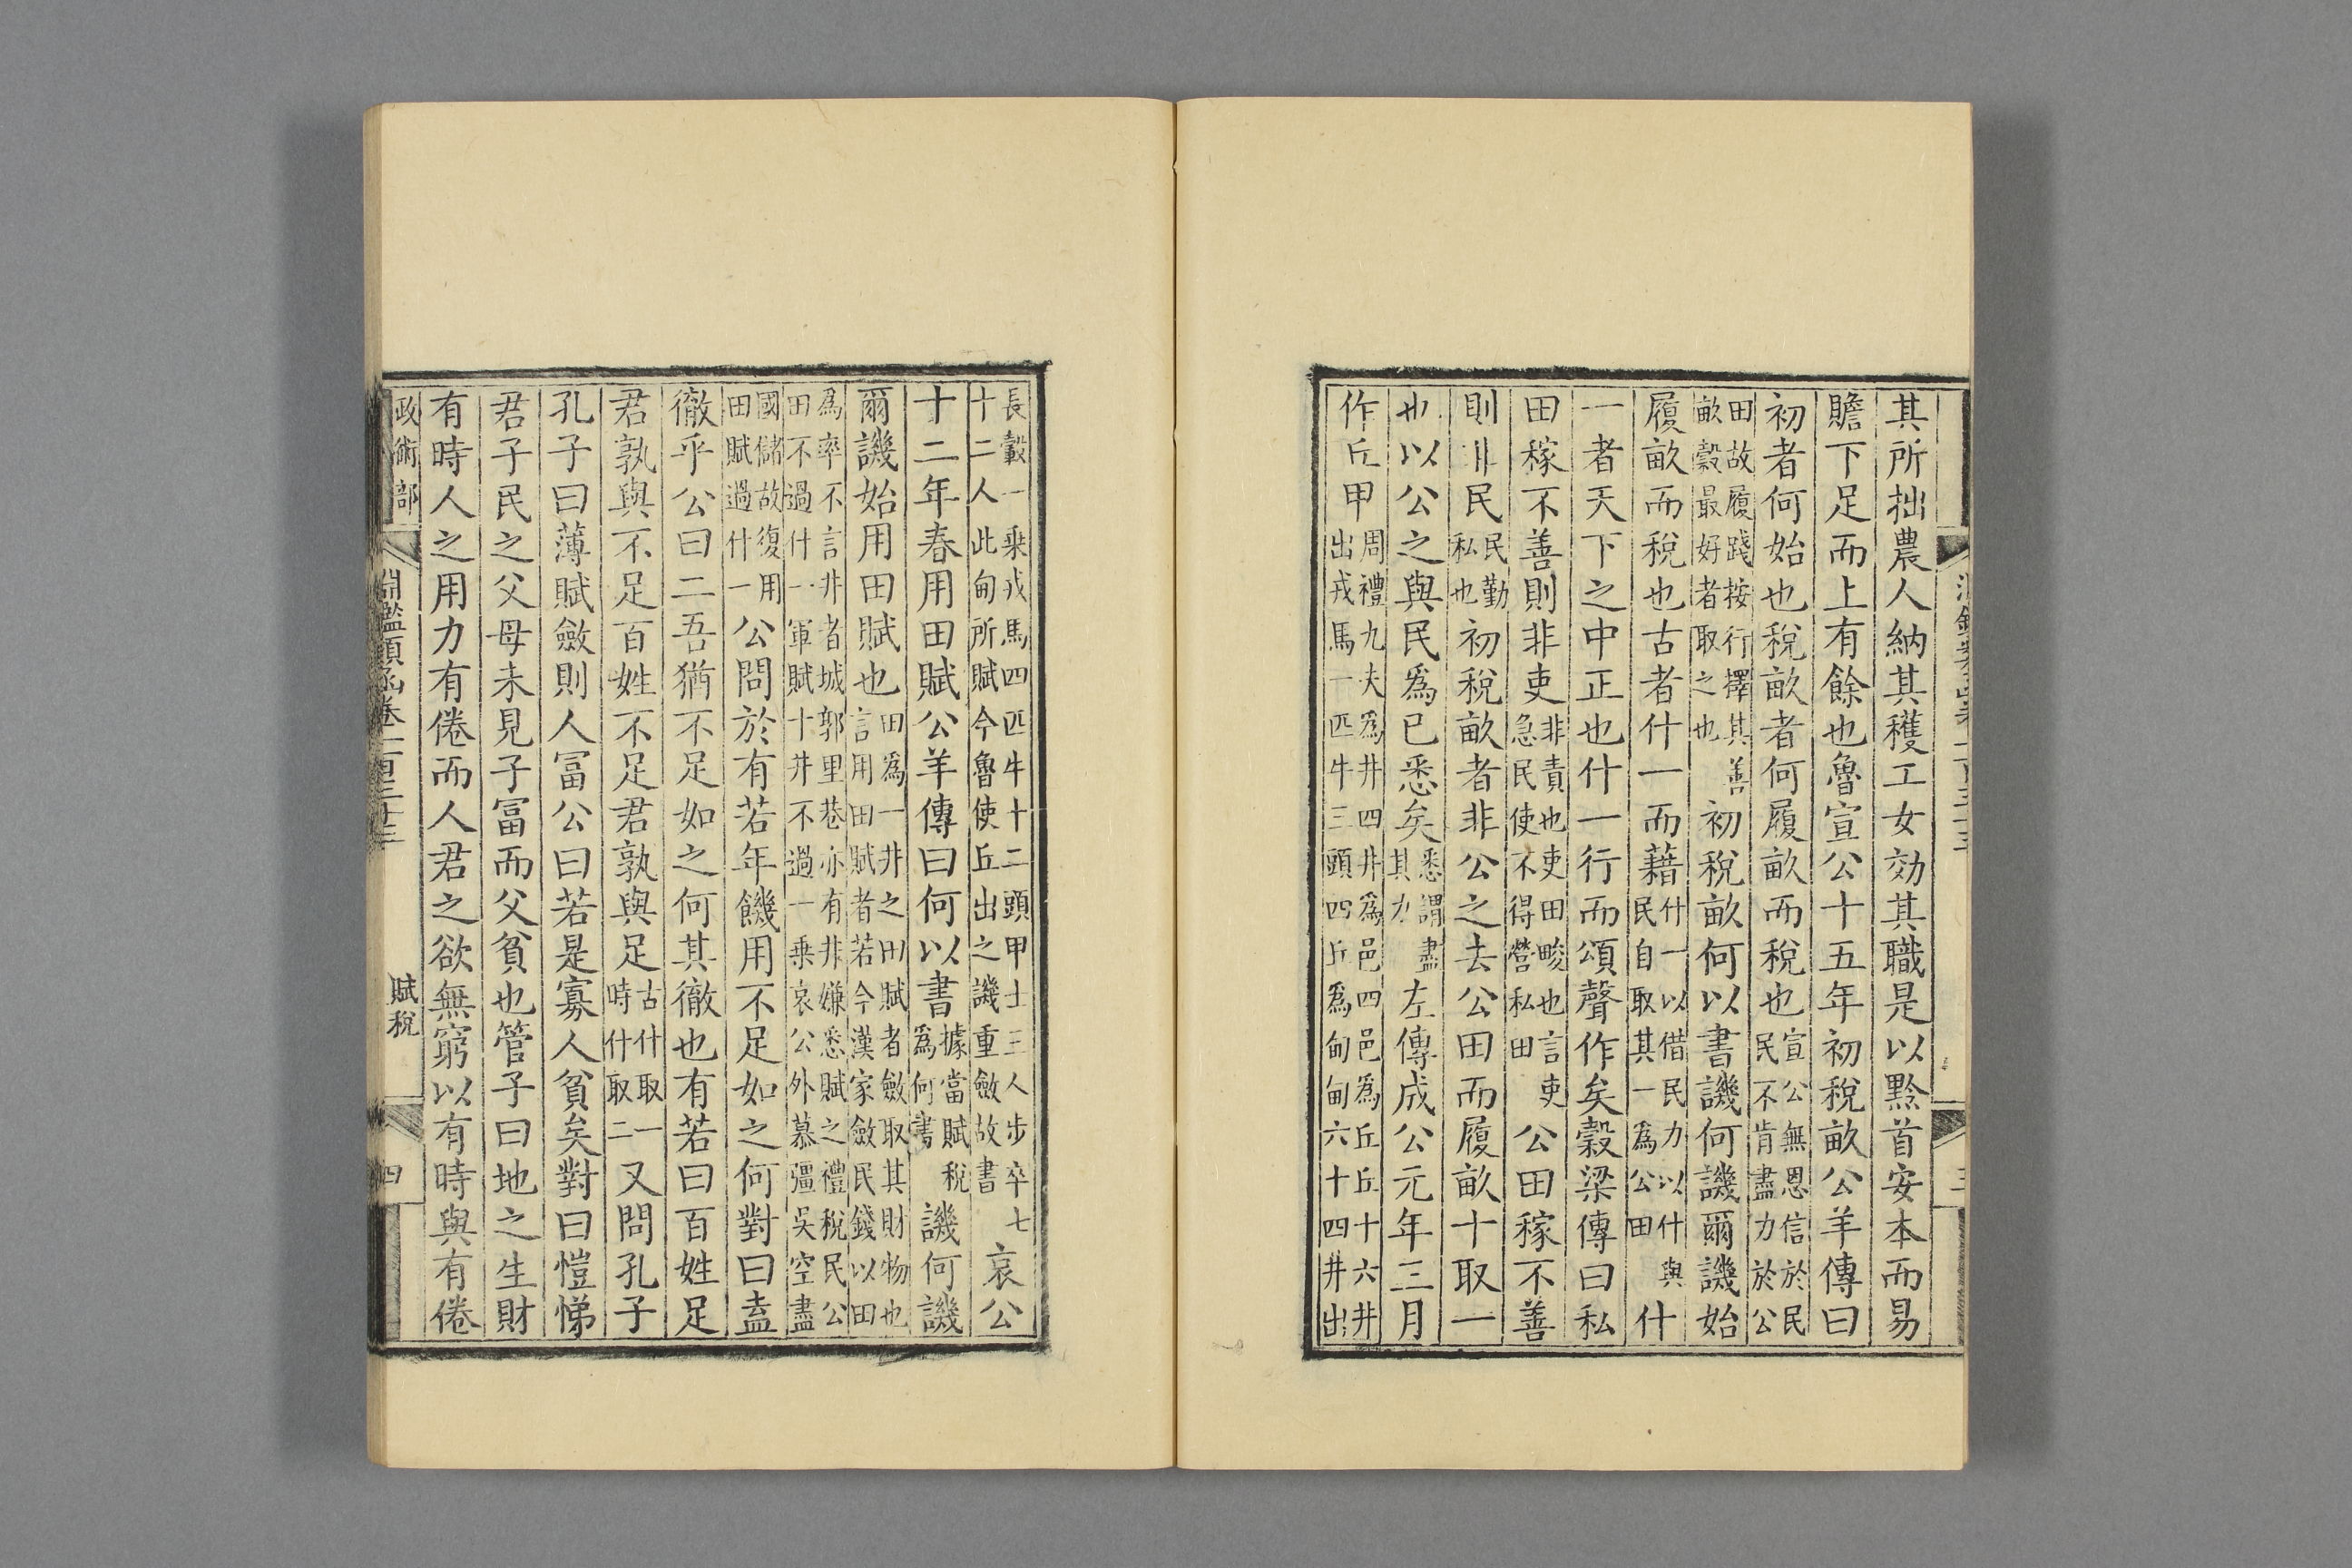 其所拙農人納其穫工女効其職是以黔首安本而易
贍下足而上有餘也魯宣公十五年初稅畝公羊傳曰
初者何始也稅畝者何履畝而稅也宣公無恩信於民民不肯盡力於公
田故履踐按行擇其善畝穀最好者取之也初稅畝何以書譏何譏爾譏始
履畝而稅也古者什一而藉什一以借民力以什與民自取其一為公田什
一者天下之中正也什一行而頌聲作矣穀梁傳曰私
田稼不善則非吏非責也吏田畯也言吏急民使不得營私田公田稼不善
則非民民勤私也初稅畝者非公之去公田而履畝十取一
也以公之與民為已悉矣悉謂盡其力左傳成公元年三月
作丘甲周禮九夫為井四井為邑四邑為丘丘十六井出戎馬一匹牛三頭四丘為甸甸六十四井出
長轂一乗戎馬四匹牛十二頭甲士三人步卒七十二人此甸所賦今魯使丘出之譏重斂故書哀公
十二年春用田賦公羊傳曰何以書據當賦稅為何書譏何譏
爾譏始用田賦也田為一井之田賦者斂取其財物也言用田賦者若今漢家斂民錢以田
為率不言井者城郭里巷亦有井嫌悉賦之禮稅民公田不過什一軍賦十井不過一乗哀公外慕彊吳空盡
國儲故復用田賦過什一公問於有若年饑用不足如之何對曰盍
徹乎公曰二吾猶不足如之何其徹也有若曰百姓足
君孰與不足百姓不足君孰與足古什取一時什取二又問孔子
孔子曰薄賦斂則人冨公曰若是寡人貧矣對曰愷悌
君子民之父母未見子冨而父貧也管子曰地之生財
有時人之用力有倦而人君之欲無窮以有時與有倦
政術部
淵鑑類函卷一百三十三
賦稅
四